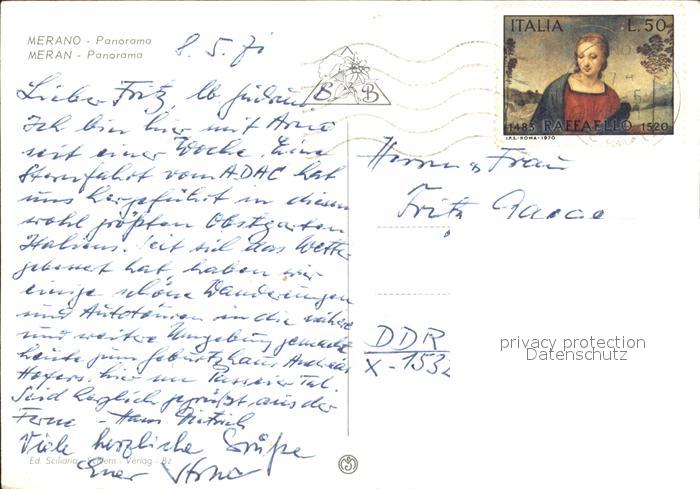 MERANO - Panorama
MERAN - Panorama
8. 5. 71
Lieber Fritz, lb Gudrun
Ich bin hier mit Arno
seit einer Woche. Eine
Sternfahrt vom ADAC hat
uns hergeführt in diesen
wohl größten Obstgarten
Italiens. Seit sich das Wetter
gebessert hat, haben wir
einige schöne Wanderungen
und Autotouren in die nähere
und weitere Umgebung gemacht
heute zum Geburtshaus Andreas
Hofers. hier im Passeier Tal.
Seid herzlich gegrüßt aus der
Ferne - Hans Dietrich
Viele herzliche Grüße
Euer Arno
Ed. Sciliaria - Schlern - Verlag - Bz
B B
ITALIA L. 50
1483 RAFFAELLO 1520
I.P.S. - ROMA - 1970
Herrn u Frau
Fritz
DDR
X - 1532
privacy protection
Datenschutz